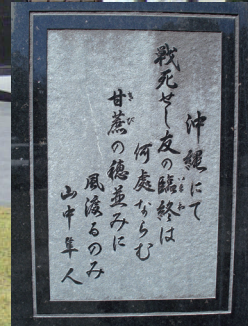 沖縄にて
戦死せし友の臨終は
何處ならむ
甘蔗の穂並みに
きび
風渡るのみ
山中隼人